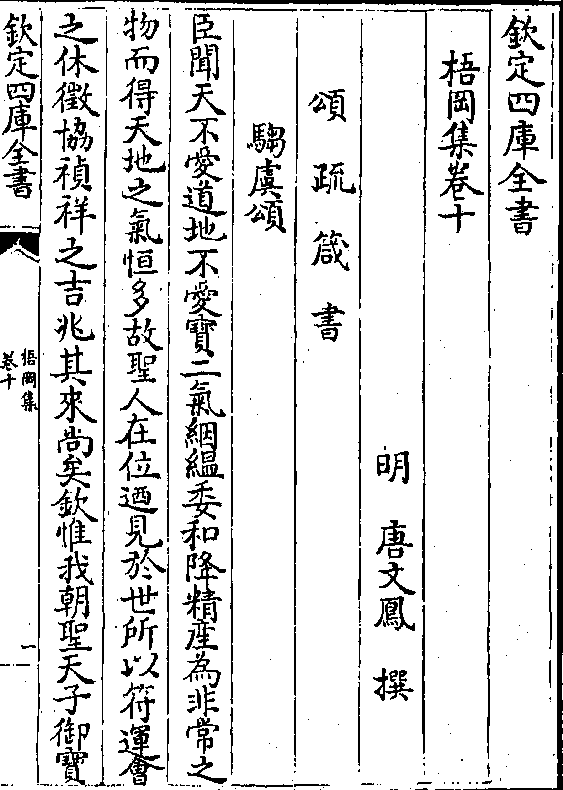 欽定四庫全書
梧岡集卷十
明 唐文鳳 撰
頌 疏 箴 書
騶虞頌
臣聞天不愛道地不愛寶二氣絪緼委和降精産為非常之
物而得天地之氣恒多故聖人在位迺見於世所以符運會
之休徵協禎祥之吉兆其來尚矣欽惟我朝聖天子御寶
欽定四庫全書
梧岡集
卷十
一